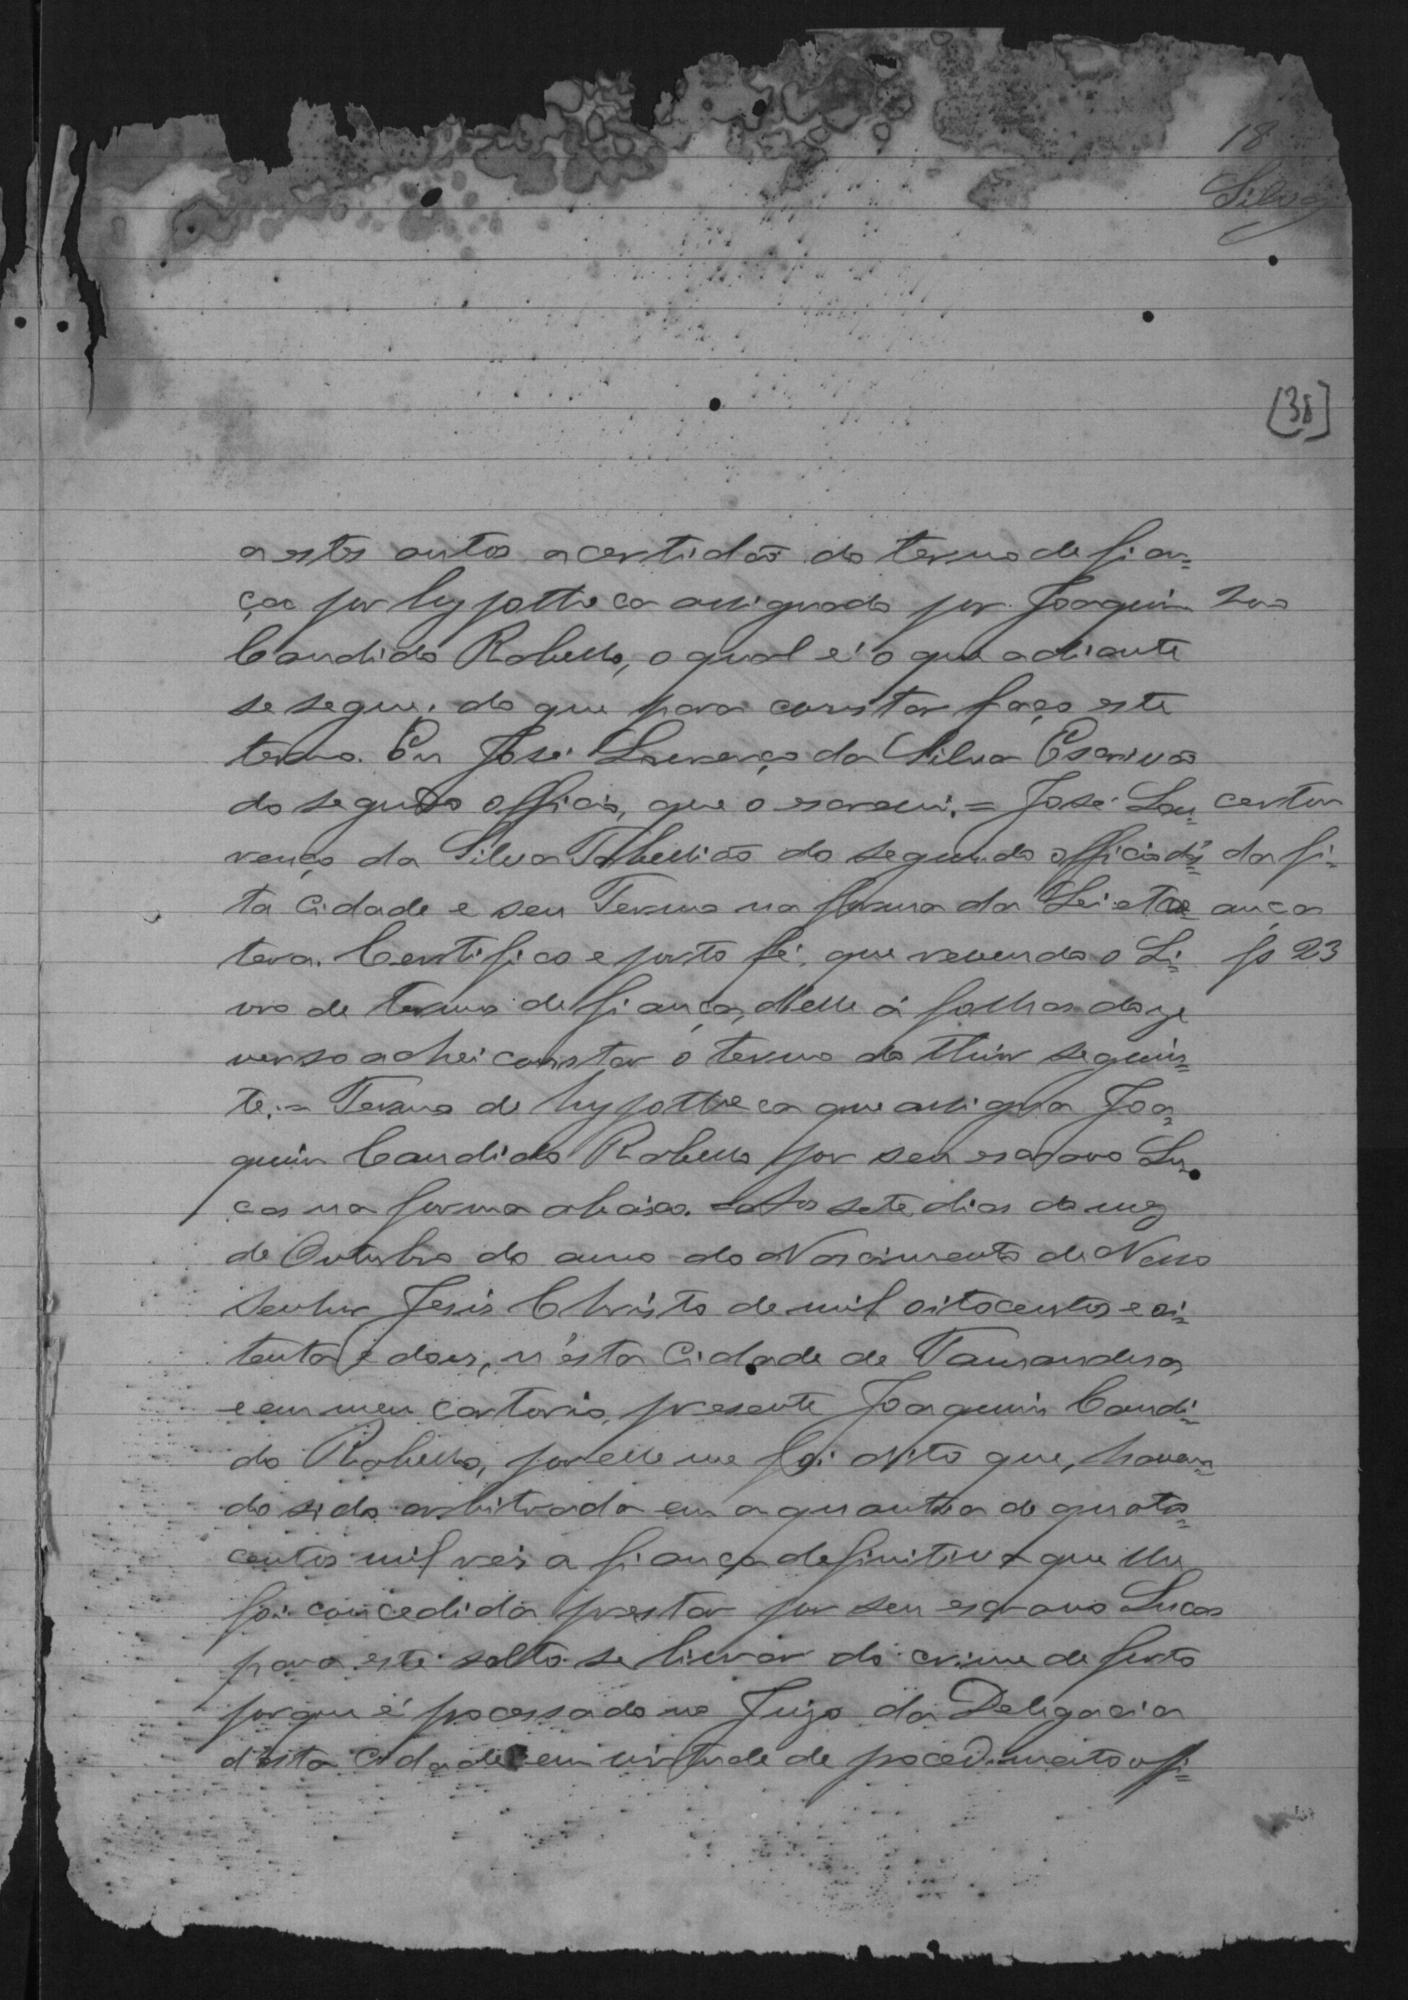 18
Silva
[38]
a estes autos a certidão do termo de fian=
ça por hypotheca assignado por Joaquim
Candido Rabello, o qual é o que adiante
se segue; do que para constar faço este
termo. Eu José Lourenço da Silva Escrivão
do segundo officio, que o escrevi. = José Lou=
renço da Silva Tabellião do segundo officio d'es=
ta Cidade e seu Termo na forma da Lei etca
tera. Certifico e porto fé, que revendo o Li=
vro de termos de fiança, d'elle á folhas doze
verso achei constar o termo do theor seguin=
te. = Termo de hypotheca que assigna Joa=
quim Candido Rabello por seu escravo Lu
cas na forma abaixo. Aos sete dias do mez
de Outubro do anno do Nascimento de Nosso
Senhor Jesus Christo de mil oitocentos e oi=
tenta e dous, n'esta Cidade de Tamandua,
e em meu cartorio, presente Joaquim Candi=
do Rabello, por elle me foi dito que, haven=
do sido arbitrada em a quantia de quatro=
centos mil reis a fiança definitiva que lhe
foi concedida prestar por seu escravo Lucas
para este solto se livrar do crime de furto
porque é processado no Juizo da Delegacia
d'esta cidade em virtude de procedimento offi=
certon
da fi=
ança
fs 23